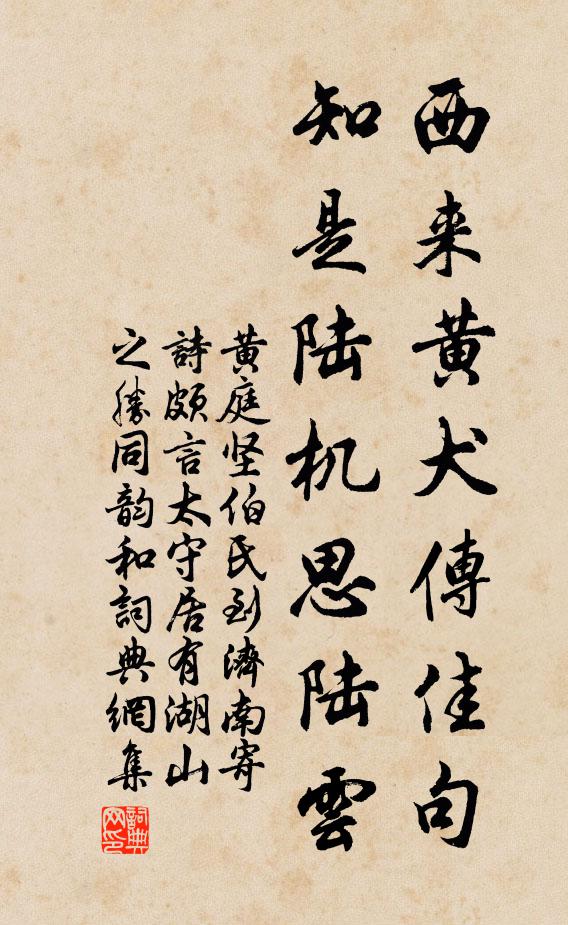 西来黄犬傳佳句
知是陆机思陆雲
黄庭坚伯氏到濟南寄
詩頗言太守居有湖山
之勝同韵和詞典網集
詞典网印